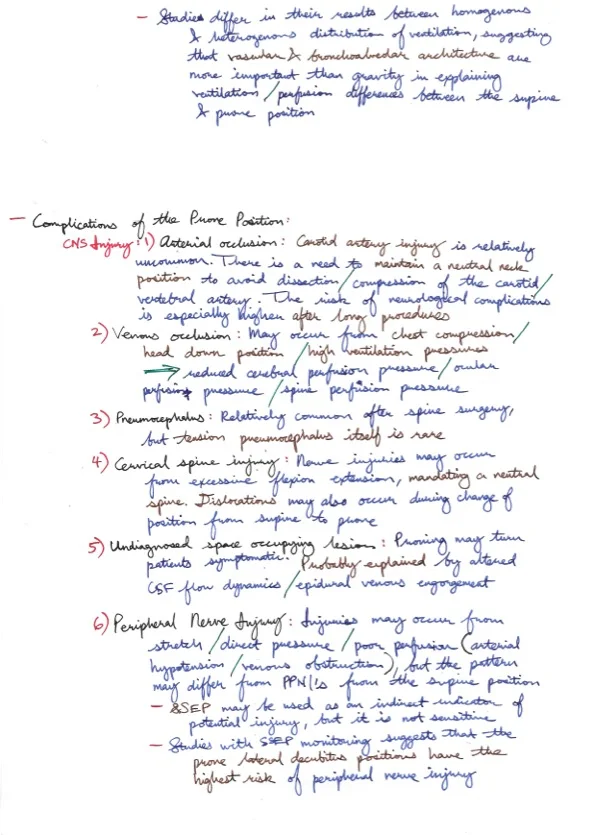 - Studies differ in their results between homogenous
& heterogenous distribution of ventilation, suggesting
that vascular & bronchoalveolar architecture are
more important than gravity in explaining
ventilation/perfusion differences between the supine
& prone position
- Complications of the Prone Position:
CNS Injury: 1) Arterial occlusion: Carotid artery injury is relatively
uncommon. There is a need to maintain a neutral neck
position to avoid dissection/compression of the carotid/
vertebral artery. The risk of neurological complications
is especially higher after long procedures
2) Venous occlusion: May occur from chest compression/
head down position/high ventilation pressures
→ reduced cerebral perfusion pressure/ocular
perfusion pressure/spine perfusion pressure
3) Pneumocephalus: Relatively common after spine surgery,
but tension pneumocephalus itself is rare
4) Cervical spine injury: Nerve injuries may occur
from excessive flexion extension, mandating a neutral
spine. Dislocations may also occur during change of
position from supine to prone
5) Undiagnosed space occupying lesion: Proning may turn
patients symptomatic. Probably explained by altered
CSF flow dynamics/epidural venous engorgement
6) Peripheral Nerve Injury: Injuries may occur from
stretch/direct pressure/poor perfusion (arterial
hypotension/venous obstruction), but the pattern
may differ from PPNI's from the supine position
- SSEP may be used as an indirect indicator of
potential injury, but it is not sensitive
- Studies with SSEP monitoring suggests that the
prone lateral decubitus positions have the
highest risk of peripheral nerve injury